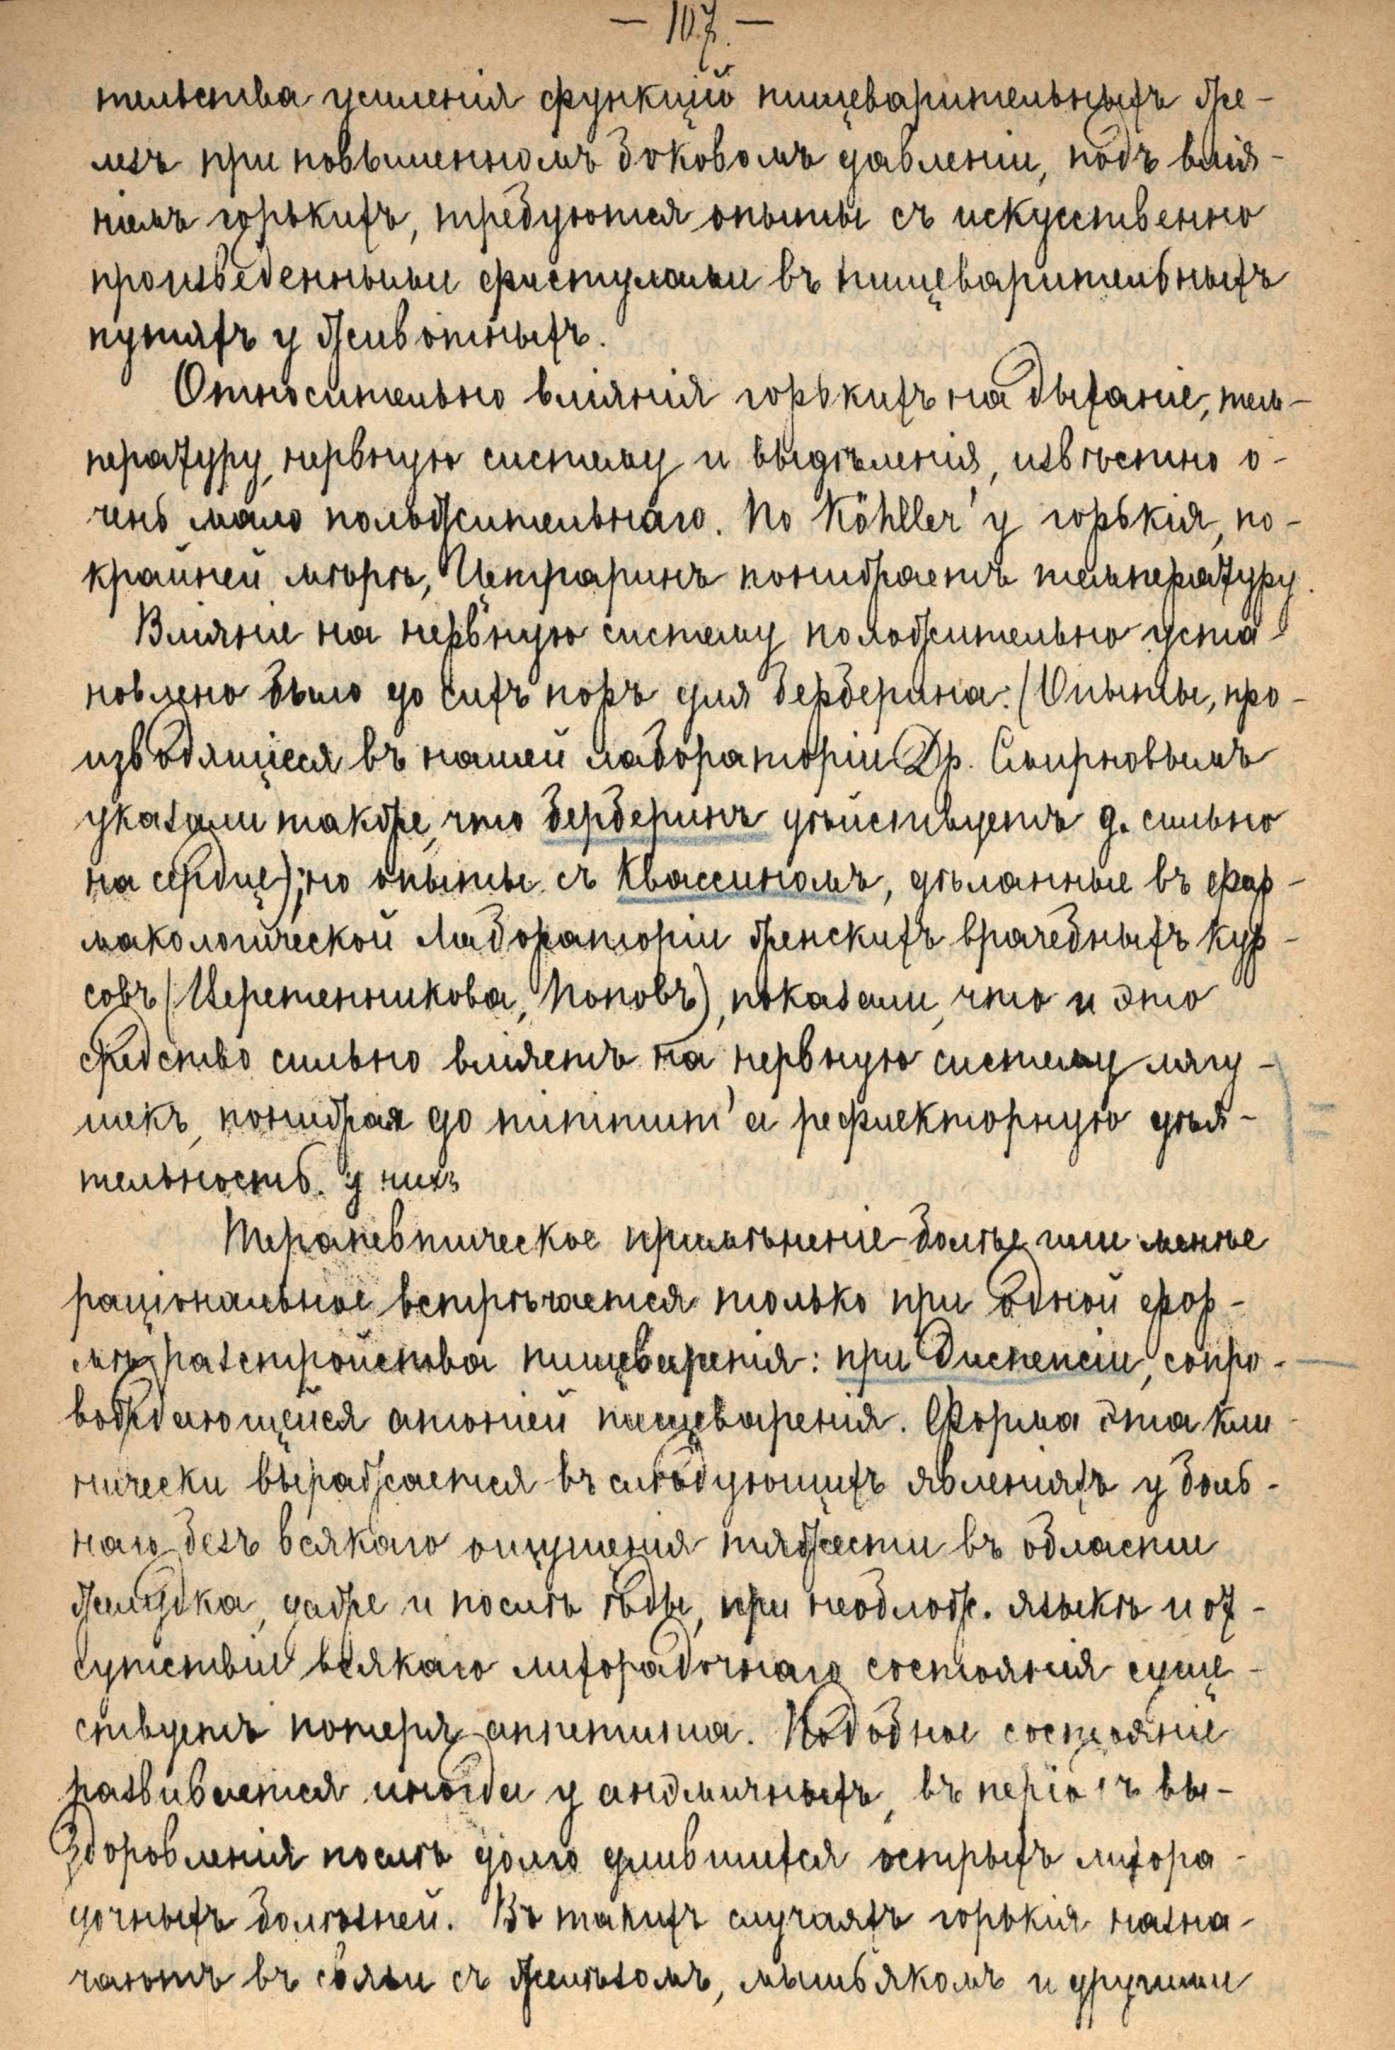 — 107. —
тельства усиленія функцій пищеварительныхъ же-
лезъ при повышенномъ боковомъ давленіи, подъ влія-
ніемъ горькихъ, требуются опыты съ искусственно
произведенными фистулами въ пищеварительныхъ
путяхъ у животныхъ.
Относительно вліянія горькихъ на дыханіе, тем-
пературу, нервную систему и выдѣленія, извѣстно о-
чень мало положительнаго. По Köhller'у горькія, по-
крайней мѣрѣ, Цетраринъ понижаетъ температуру.
Вліяніе на нервную систему положительно уста-
новлено было до сихъ поръ для берберина: (Опыты, про-
изводящіеся въ нашей лабораторіи Др. Смирновымъ
указали также, что берберинъ дѣйствуетъ д. сильно
на сердце); но опыты съ Квассиномъ, дѣланные въ фар-
макологической Лабораторіи женскихъ врачебныхъ кур-
совъ (Веретенникова, Поповъ), показали, что и это
средство сильно вліяетъ на нервную систему лягу-
шекъ, понижая до minimum'а рефлекторную дѣя-
тельность у нихъ
Терапевтическое примѣненіе болѣе или менѣе
раціональное встрѣчается только при одной фор-
мѣ разстройства пищеваренія: при диспепсіи, сопро-
вождающейся атоніей пищеваренія. Форма эта кли-
нически выражается въ слѣдующихъ явленіяхъ у боль-
наго безъ всякаго ощущенія тяжести въ области
желудка, даже и послѣ ѣды, при необлож. языкѣ и от-
сутствіи всякаго лихорадочнаго состоянія суще-
ствуетъ потеря аппетита. Подобное состояніе
развивается иногда у анэмичныхъ, въ періодъ вы-
здоровленія послѣ долго длившихся острыхъ лихора-
дочныхъ болѣзней. Въ такихъ случаяхъ горькія назна-
чаютъ въ связи съ желѣзомъ, мышьякомъ и другими